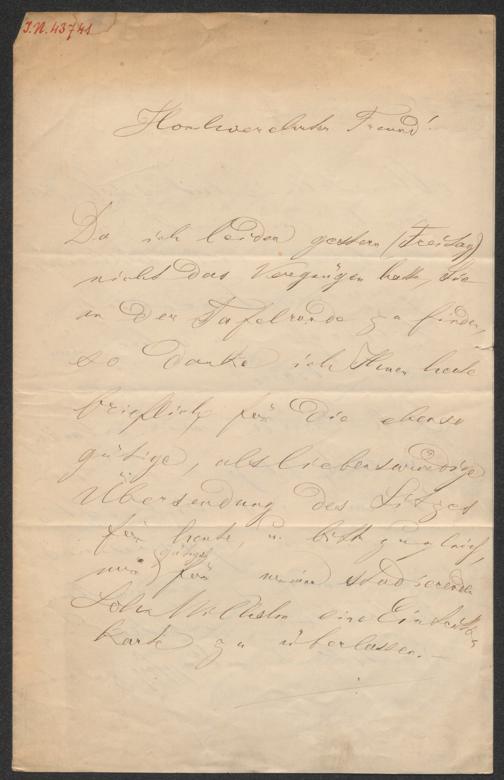 J.N. 43741
Hochverehrter Freund!
Da ich leider gestern (Freitag)
nicht das Vergnügen hatte, Sie
an der Tafelrunde zu finden,
so danke ich Ihnen heute
brieflich für die ebenso
gütige, als liebenswürdige
Übersendung des Sitzes
für heute, u. bitte zugleich,
mir gütigst für meinen studierenden
Sohn Wilhelm eine Eintritts
karte zu überlassen. —